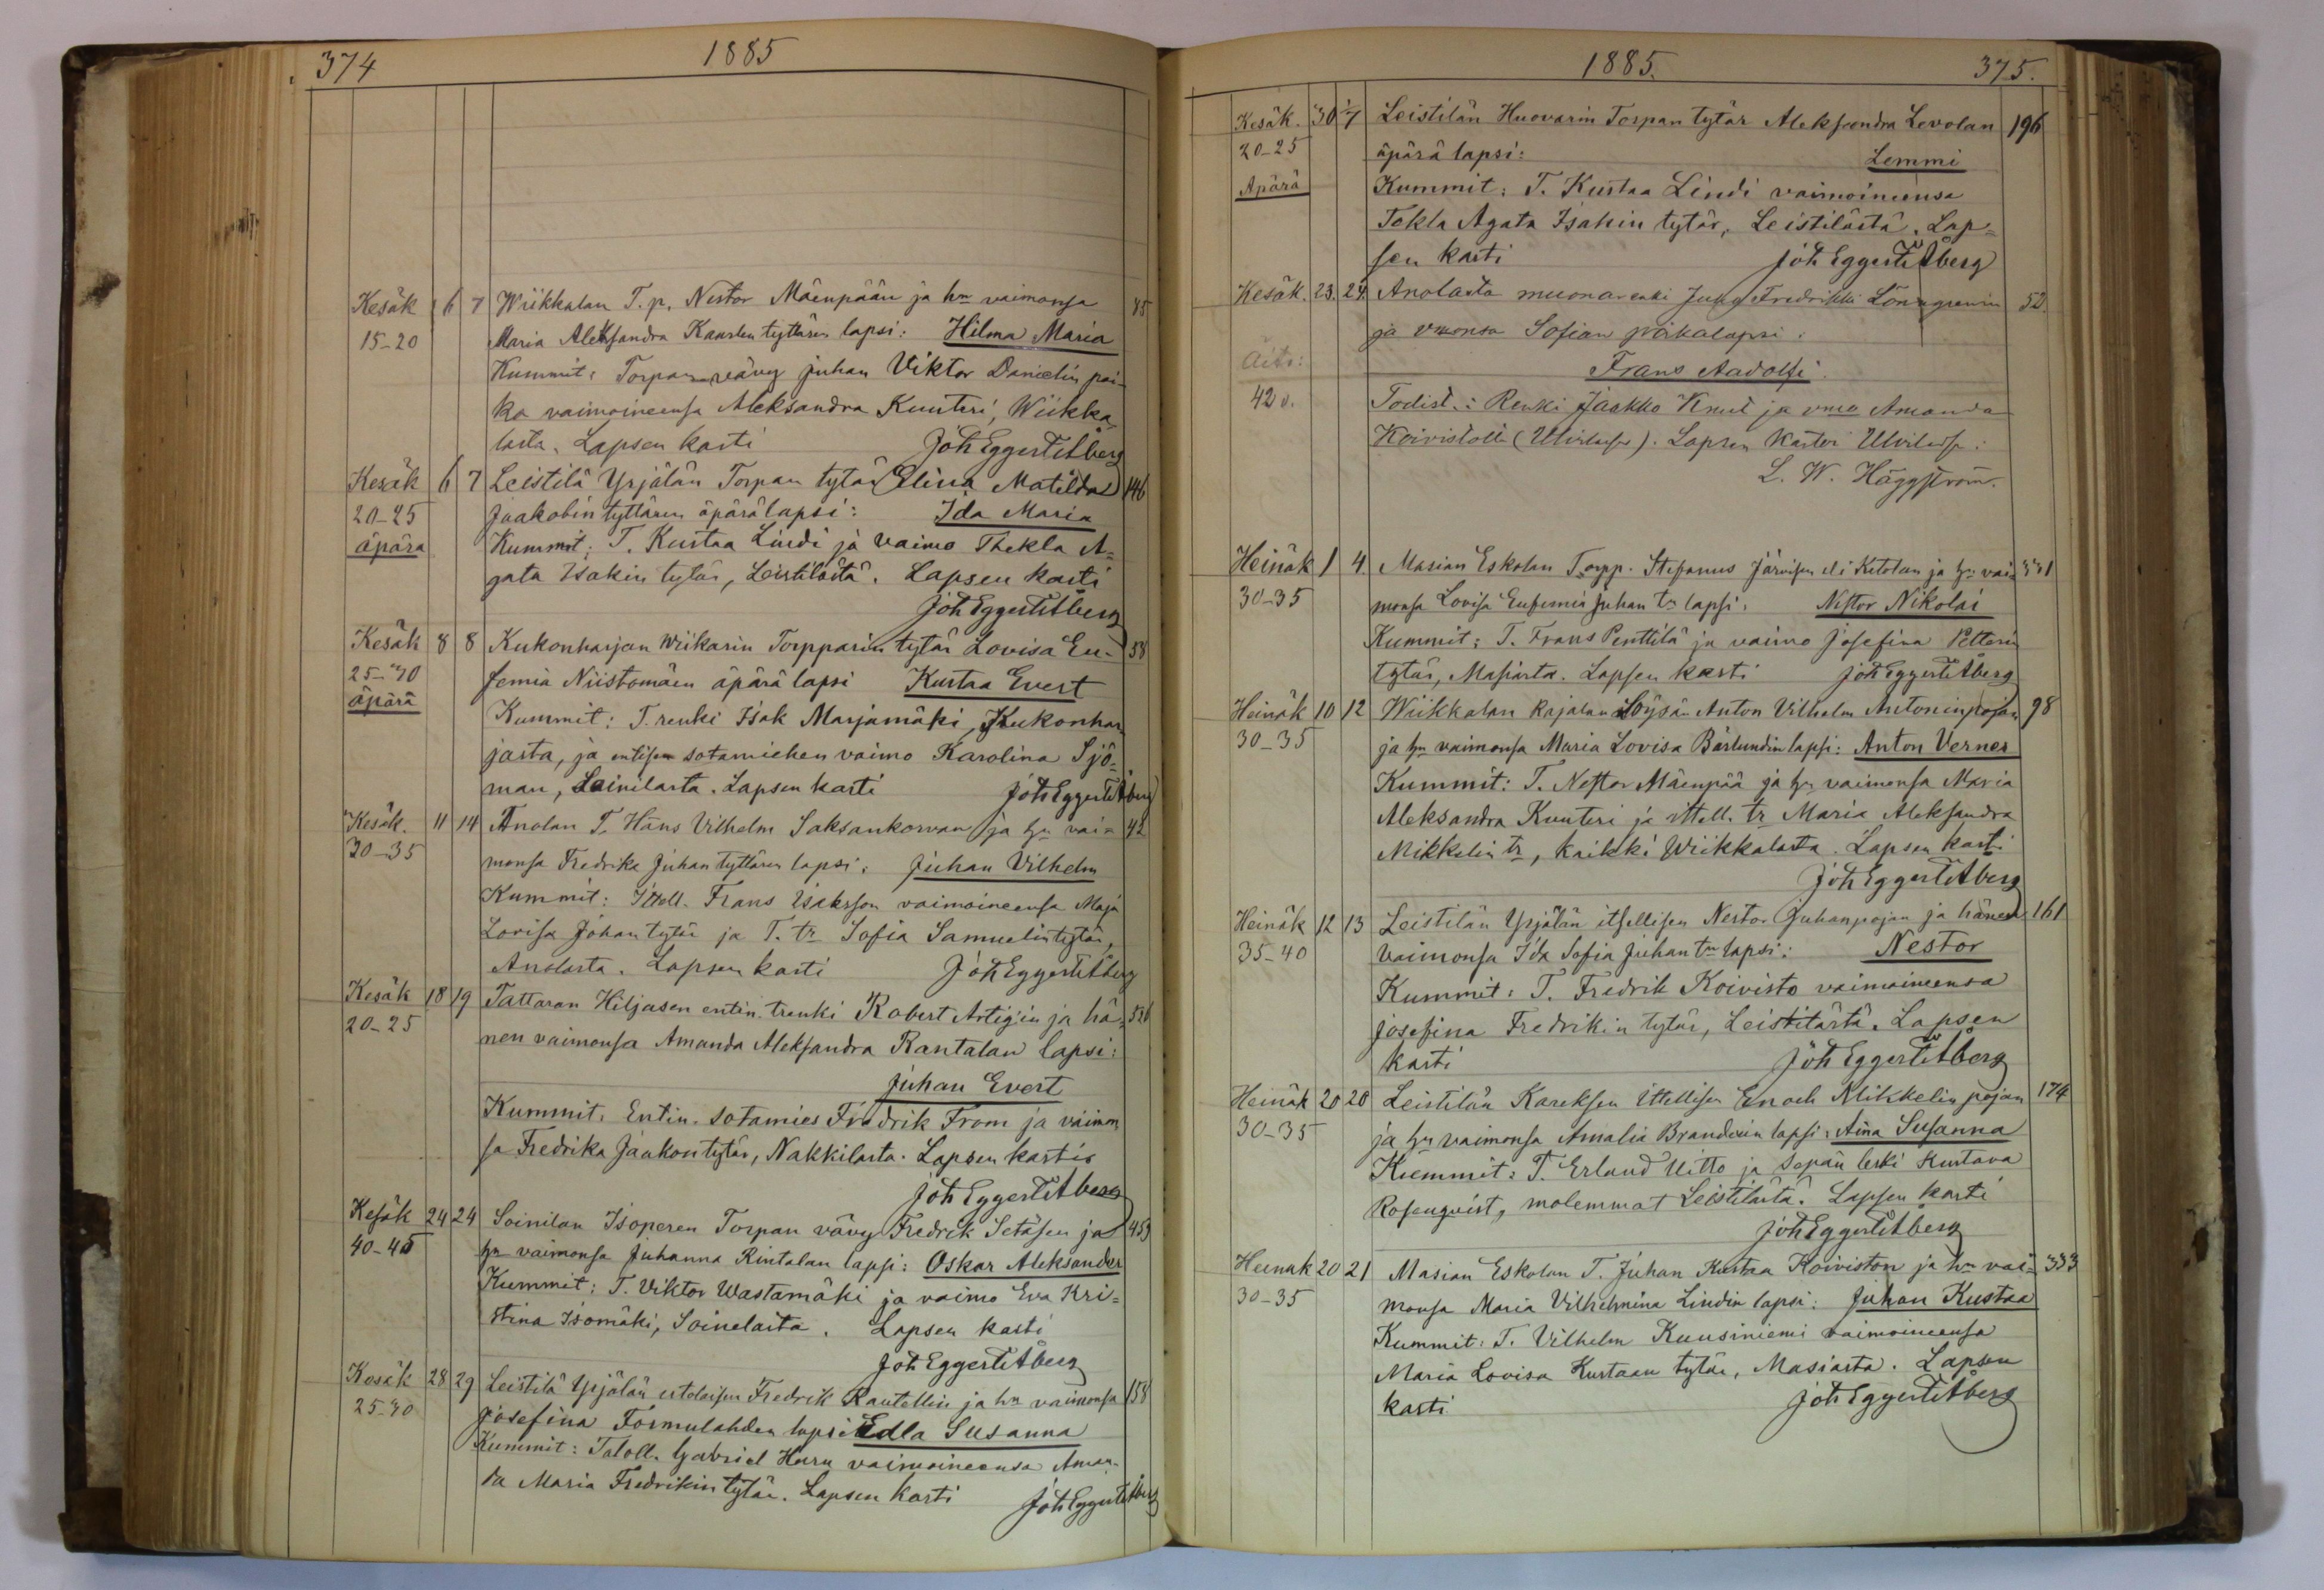 374
1885
Kesäk 6 7 Wiikkalan T. p. Nestor Mäenpään ja hn vaimonsa 85
15-20 Maria Aleksandra Kaarlen tyttären lapsi: Hilma Maria
Kummit: Torpan vävy Juhan Viktor Danielin poi-
ka vaimoineensa Aleksandra Kuuteri, Wiikka-
lasta. Lapsen kasti Joh Eggert Åberg
Kesäk 6 7 Leistilä Yrjälän Torpan tytär Elina Matilda 146
20-25 Jaakobin tyttären äpärälapsi: Ida Maria
äpärä Kummit: T. Kustaa Lindi ja vaimo Thekla A-
gata Isakin tytär, Leistilästä. Lapsen kasti
Joh Eggert Åberg
Kesäk 8 8 Kukonharjan Wiikarin Torpparin tytär Lovisa Eu- 58
25-30 femia Niistomäen äpärä lapsi Kustaa Evert
äpärä
Kummit: T. renki Isak Marjamäki, Kukonhar-
jasta, ja entisen sotamiehen vaimo Karolina Sjö-
man, Leinilasta. Lapsen kasti Joh Eggert Åberg
Kesäk. 11 14 Anolan T. Hans Vilhelm Saksankorvan ja hn vai- 42
30-35 monsa Fredrika Juhan tyttären lapsi: Juhan Vilhelm
Kummit: Ittell. Frans Isaksson vaimoineensa Maja
Lovisa Johan tytär ja T. tr Sofia Samuelin tytär,
Anolasta. Lapsen kasti Joh Eggert Åberg
Kesäk 18 19 Tattaran Hiljasen entin. trenki Robert Artigin ja hä- 526
20-25 nen vaimonsa Amanda Aleksandra Rantalan lapsi:
Juhan Evert
Kummit: Entin. sotamies Fredrik From ja vaimon-
sa Fredrika Jaakon tytär, Nakkilasta. Lapsen kasti
Joh Eggert Åberg
Kesäk 24 24 Soinilan Isoperen Torpan vävy Fredrik Setäsen ja 453
40-45 hn vaimonsa Juhanna Rintalan lapsi: Oskar Aleksander
Kummit: T. Viktor Wastamäki ja vaimo Eva Kri-
stina Isomäki, Soinelasta. Lapsen kasti
Joh Eggert Åberg
Kesäk 28 29 Leistilä Yrjälän Fredrik Rautellin ja hn vaimonsa 158
25-30 Josefina Formulahden lapsi Edla Susanna
Kummit: Taloll. Gabriel Haru vaimoineensa Aman-
da Maria Fredrikin tytär. Lapsen kasti Joh Eggert Åberg
1885.
375.
Kesäk. 30 1/7 Leistilän Huovarin Torpan tytär Aleksandra Levolan 196
20-25 äpärä lapsi: Lemmi
Äpärä Kummit: T. Kustaa Lindi vaimoineensa
Tekla Agata Isakin tytär, Leistilästä. Lap-
sen kasti Joh Eggert Åberg
Kesäk. 23. 24. Anolasta muonarenki Juho Fredrikki Lönngrenin 52.
ja vmonsa Sofian poikalapsi:
Äiti: Frans Aadolfi.
42 v. Todist.: Renki Jaakko Knut ja vmo Amanda
Koivistolle (Ulvilassa). Lapsen kastoi Ulvilassa:
L. W. Häggström.
Heinäk 1 4. Masian Eskolan Torpp. Stefanus Järvisen eli Ketolan ja hn vai- 331
30-35 monsa Lovisa Eufemia Juhan tr lapsi: Nestor Nikolai
Kummit: T. Frans Penttilä ja vaimo Josefina Petterin
tytär, Masiasta. Lapsen kasti Joh Eggert Åberg
Heinäk 10 12 Wiikkalan Rajalan Löysän Anton Vilhelm Antoninpojan 98
30-35 ja hn vaimonsa Maria Lovisa Bärlundin lapsi: Anton Verner
Kummit: T. Nestor Mäenpää ja hn vaimonsa Maria
Aleksandra Kuuteri ja ittell. tr Maria Aleksandra
Mikkelin tr, kaikki Wiikkalasta. Lapsen kasti
Joh Eggert Åberg
Heinäk 12 13 Leistilän Yrjälän itsellisen Nestor Juhanpojan ja hänen 161
35-40 vaimonsa Ida Sofia Juhan tn lapsi: Nestor
Kummit: T. Fredrik Koivisto vaimoineensa
Josefina Fredrikin tytär, Leistilästä. Lapsen
kasti Joh Eggert Åberg
Heinäk 20 20 Leistilän Kareksen Ittellisen Enoch Mikkelin pojan 174
30-35 ja hn vaimonsa Amalia Branderin lapsi: Aina Susanna
Kummit: T. Erland Uitto ja sepän leski Kustava
Rosenqvist, molemmat Leistilästä. Lapsen kasti
Joh Eggert Åberg
Heinäk 20 21 Masian Eskolan T. Juhan Kustaa Koiviston ja hn vai- 333
30-35 monsa Maria Vilhelmina Lindin lapsi: Juhan Kustaa
Kummit: T. Vilhelm Kuusiniemi vaimoineensa
Maria Lovisa Kustaan tytär, Masiasta. Lapsen
kasti Joh Eggert Åberg